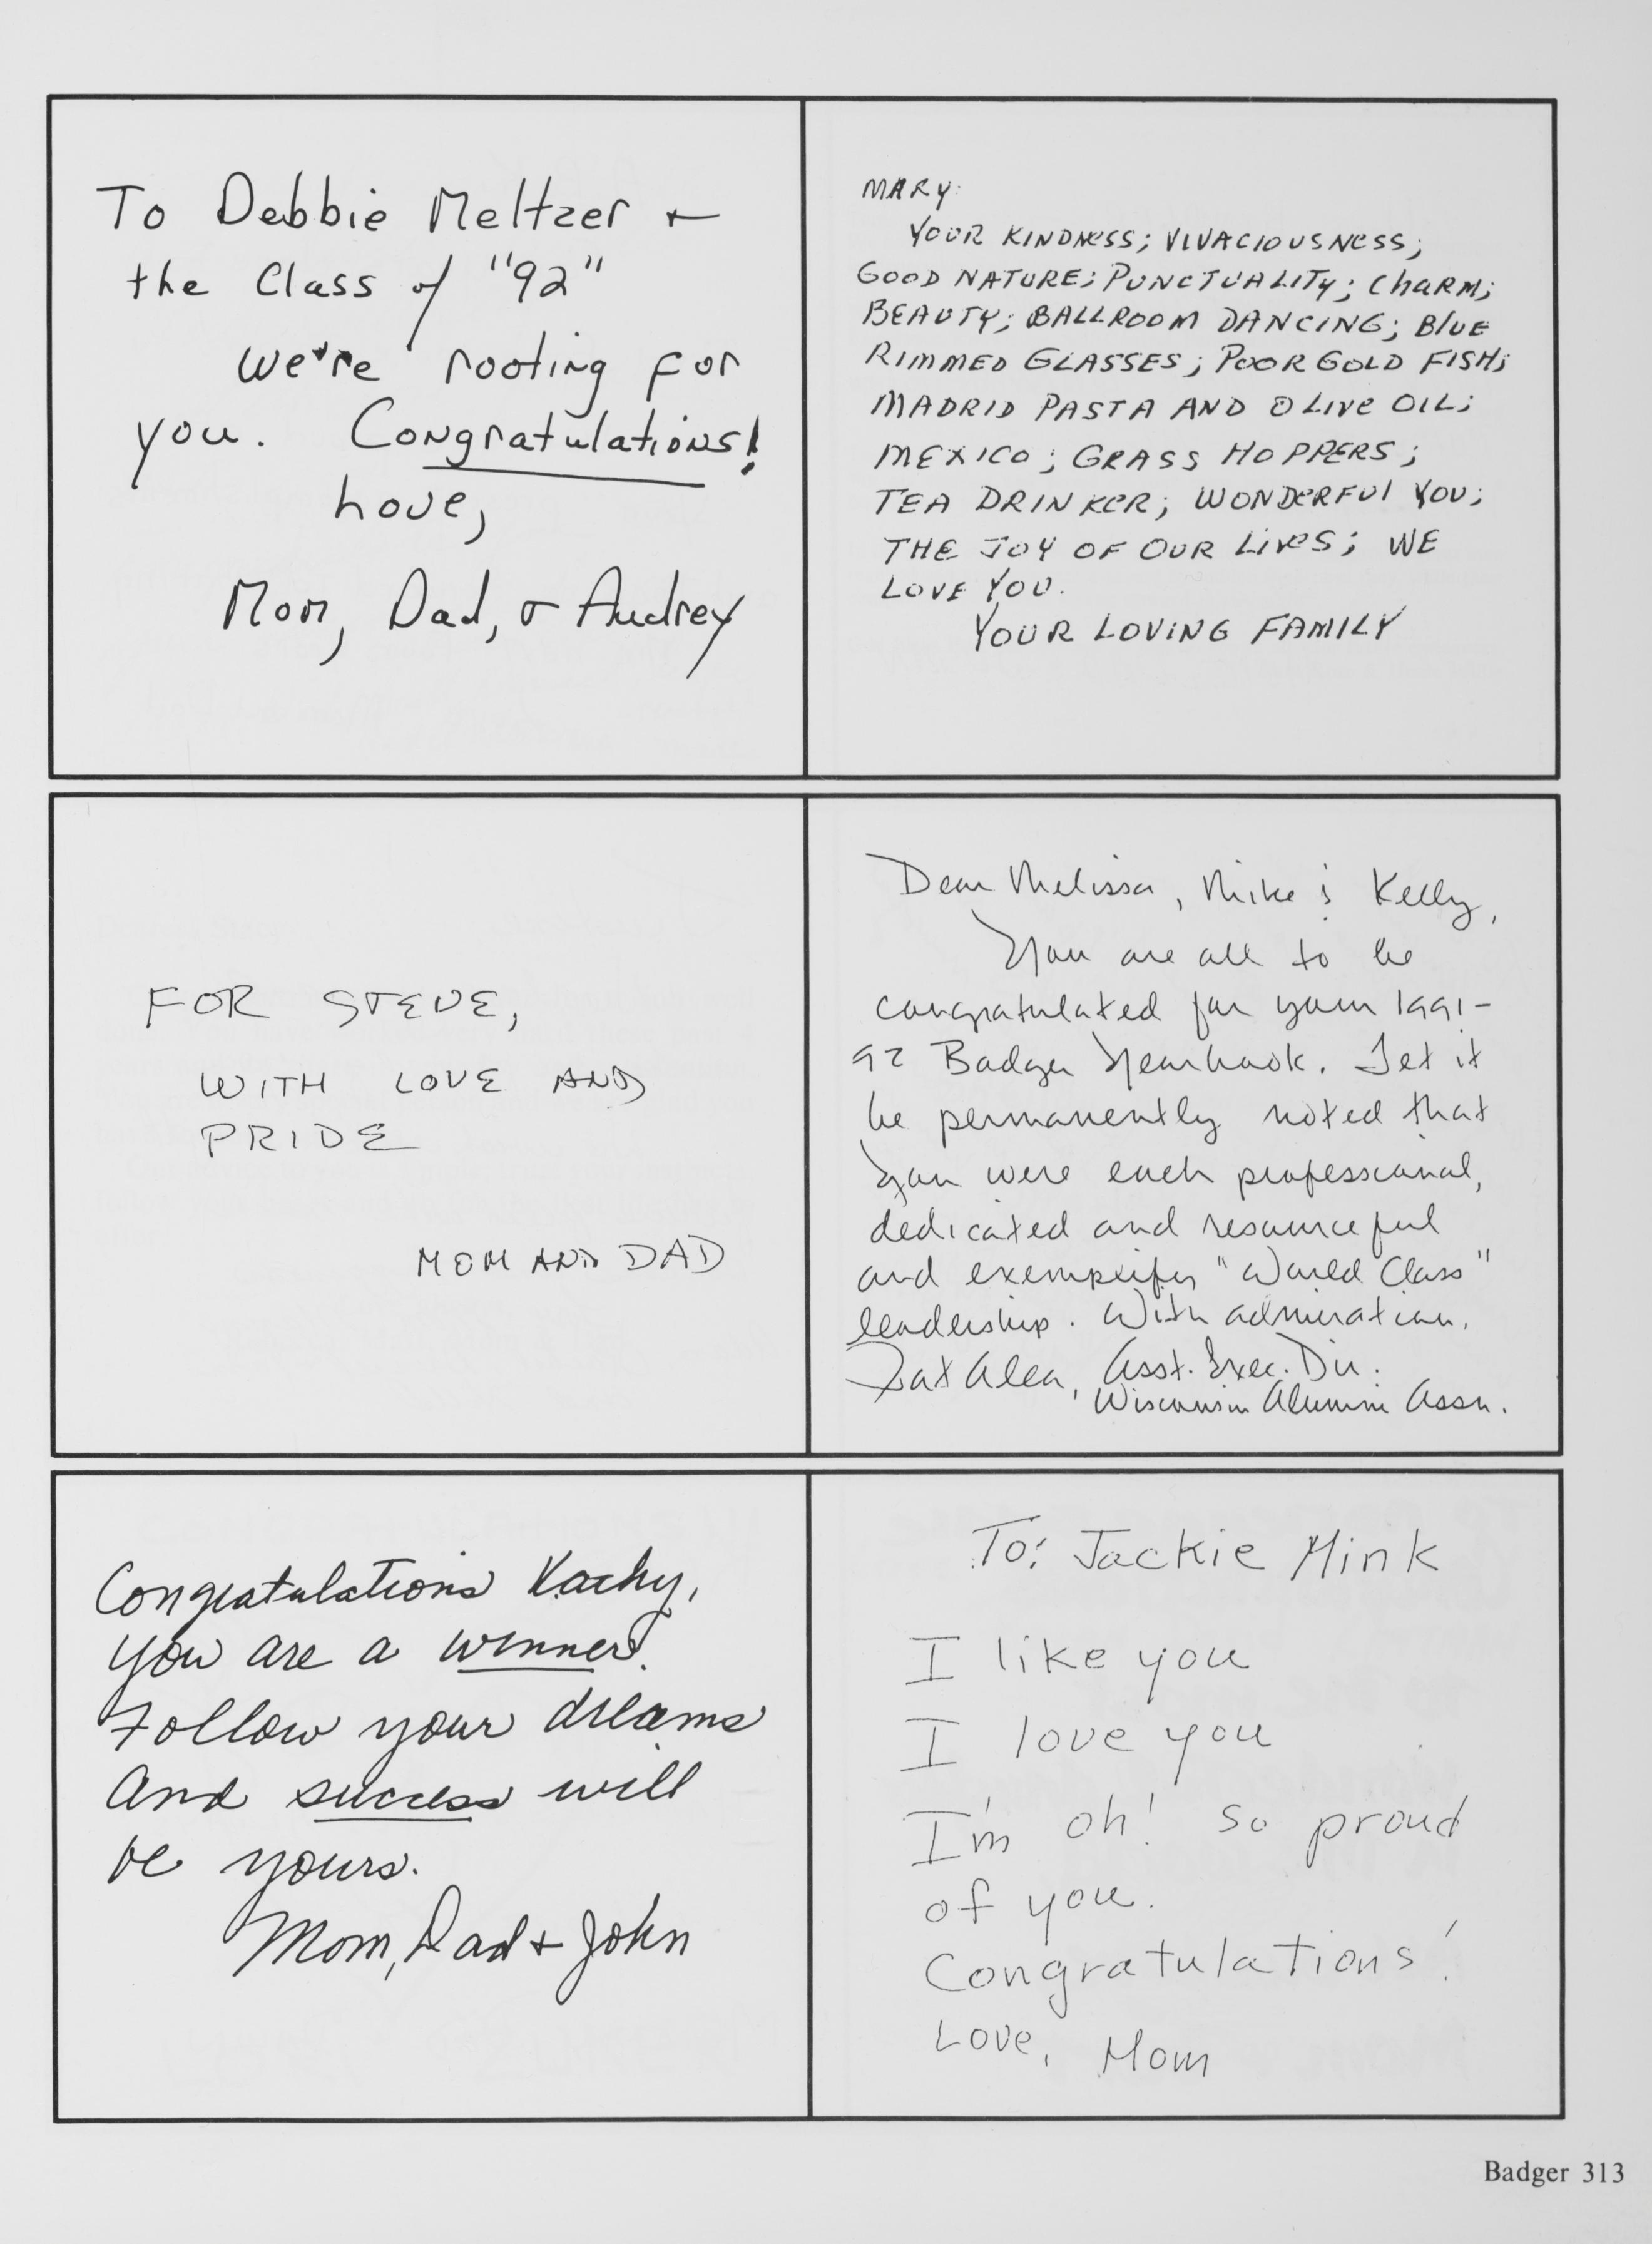 To Debbie Meltzer +
the Class of "92"
We're rooting for
you. Congratulations!
Love,
Mom, Dad, & Audrey
MARY:
YOUR KINDNESS; VIVACIOUSNESS;
GOOD NATURE; PUNCTUALITY; CHARM;
BEAUTY; BALLROOM DANCING; BLUE
RIMMED GLASSES; POOR GOLD FISH;
MADRID PASTA AND OLIVE OIL;
MEXICO; GRASS HOPPERS;
TEA DRINKER; WONDERFUL YOU;
THE JOY OF OUR LIVES; WE
LOVE YOU.
YOUR LOVING FAMILY
FOR STEVE,
WITH LOVE AND
PRIDE
MOM AND DAD
Dear Melissa, Mike & Kelly,
You are all to be
congratulated for your 1991-
92 Badger Yearbook. Let it
be permanently noted that
you were each professional,
dedicated and resourceful
and exemplify "World Class"
leadership. With admiration,
Pat Alea, Asst. Exec. Dir.
Wisconsin Alumni Assn.
Congratulations Kathy,
you are a winner.
Follow your dreams
and success will
be yours.
Mom, Dad + John
To: Jackie Mink
I like you
I love you
I'm oh! so proud
of you.
Congratulations!
Love, Mom
Badger 313